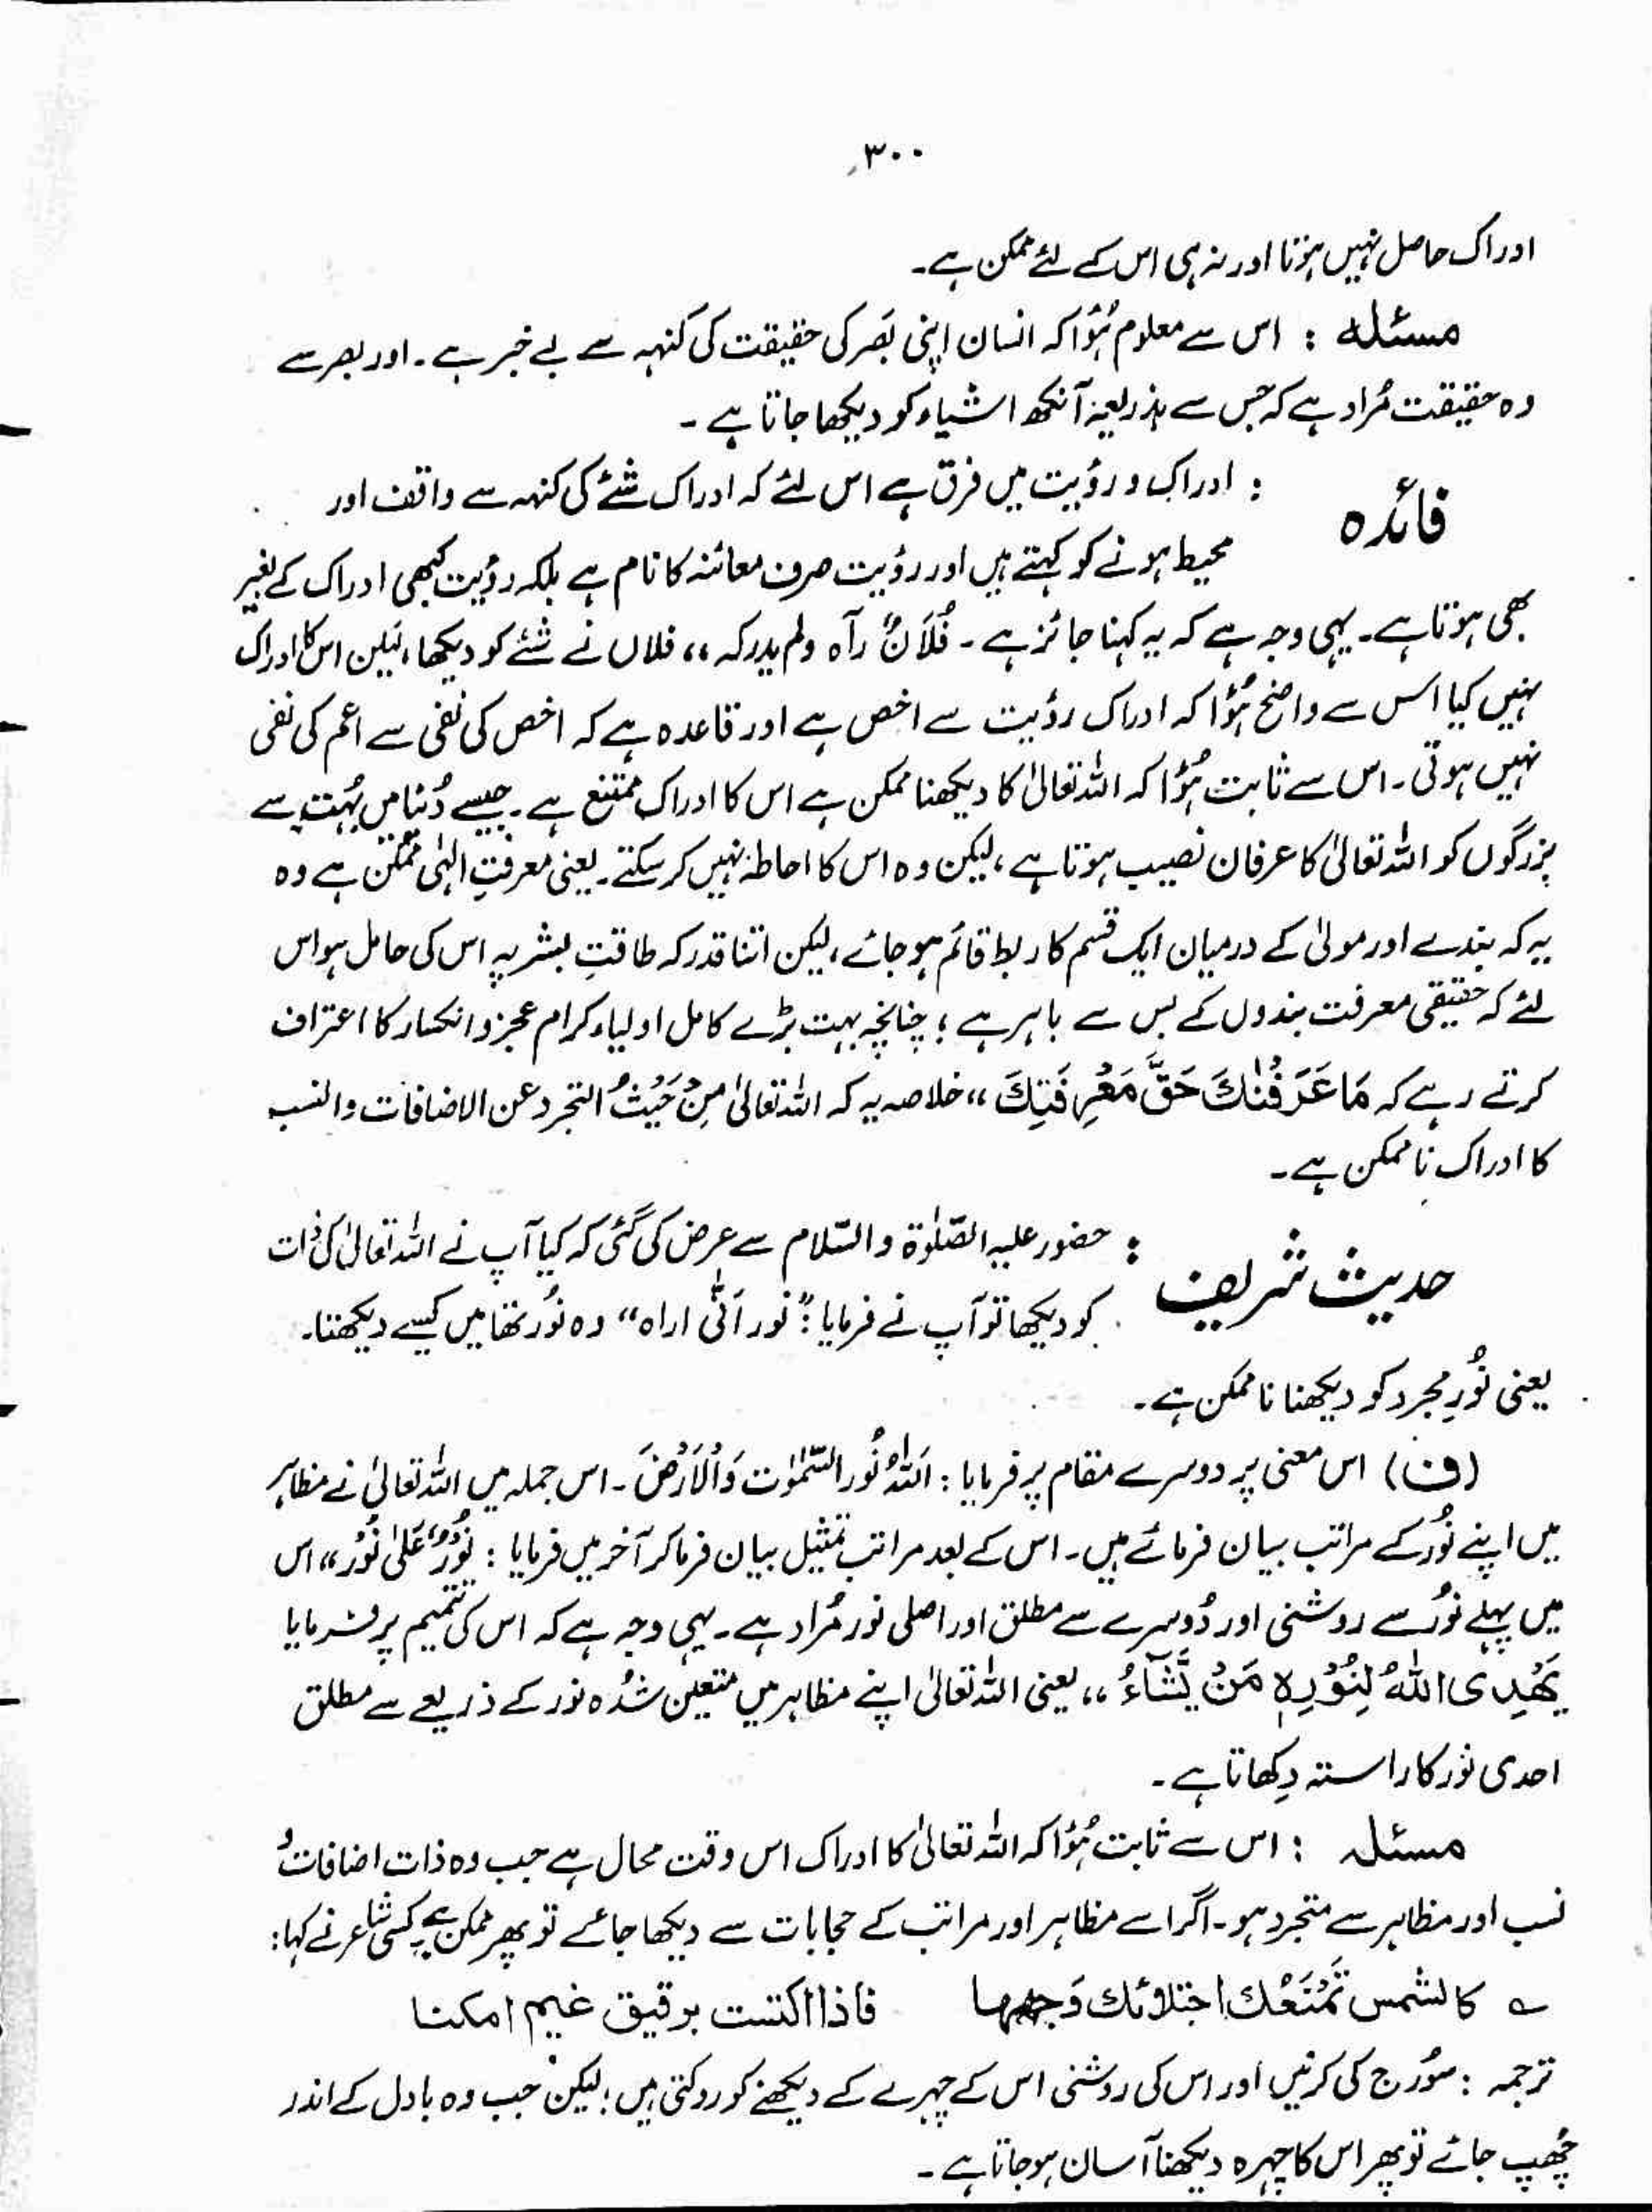 ۳۰۰
ادراک حاصل نہیں ہوتا اور نہ ہی اس کے لئے ممکن ہے۔
مسئلہ : اس سے معلوم ہُوا کہ انسان اپنی بَصَر کی حقیقت کی کُنہہ سے بے خبر ہے۔ اور بصر سے
وہ حقیقت مُراد ہے کہ جس سے بذریعہ آنکھ اشیاء کو دیکھا جاتا ہے ۔
فائدہ : ادراک و رؤیت میں فرق ہے اس لئے کہ ادراک شئے کی کنہہ سے واقف اور
محیط ہونے کو کہتے ہیں اور رؤیت صرف معائنہ کا نام ہے بلکہ رؤیت کبھی ادراک کے بغیر
بھی ہوتا ہے۔ یہی وجہ ہے کہ یہ کہنا جائز ہے ۔ فُلَانٌ رآہ ولم یدرکہ ،، فلاں نے شئے کو دیکھا، لیکن اس کا ادراک
نہیں کیا اس سے واضح ہُوا کہ ادراک رؤیت سے اخص ہے اور قاعدہ ہے کہ اخص کی نفی سے اعم کی نفی
نہیں ہوتی۔ اس سے ثابت ہُوا کہ اللہ تعالیٰ کا دیکھنا ممکن ہے اس کا ادراک ممتنع ہے۔ جیسے دُنیا میں بہُت سے
بزرگوں کو اللہ تعالیٰ کا عرفان نصیب ہوتا ہے ، لیکن وہ اس کا احاطہ نہیں کر سکتے۔ یعنی معرفتِ الٰہی ممکن ہے وہ
یہ کہ بندے اور مولیٰ کے درمیان ایک قسم کا ربط قائم ہو جائے ، لیکن اتنا قدر کہ طاقتِ بشریہ اس کی حامل ہو اس
لئے کہ حقیقی معرفت بندوں کے بس سے باہر ہے ؛ چنانچہ بہت بڑے کامل اولیاء کرام عجز و انکسار کا اعتراف
کرتے رہے کہ مَا عَرَفْنٰكَ حَقَّ مَعْرِفَتِكَ ،، خلاصہ یہ کہ اللہ تعالیٰ مِنْ حَیْثُ التجرد عن الاضافات والنسب
کا ادراک نا ممکن ہے ۔
حدیث شریف : حضور علیہ الصّلوٰۃ والسّلام سے عرض کی گئی کہ کیا آپ نے اللہ تعالیٰ کی ذات
کو دیکھا تو آپ نے فرمایا : "نور اَنّٰی اراہ" وہ نُور تھا میں کیسے دیکھتا۔
یعنی نُورِ مجرد کو دیکھنا نا ممکن ہے ۔
(ف) اس معنی پر دوسرے مقام پر فرمایا : اَللّٰہُ نُورُ السَّمٰوٰت وَالْاَرْضَ ۔ اس جملہ میں اللہ تعالیٰ نے مظاہر
میں اپنے نُور کے مراتب بیان فرمائے ہیں۔ اس کے بعد مراتب تمثیل بیان فرما کر آخر میں فرمایا : نُوْرٌ عَلٰی نُوْر ،، اس
میں پہلے نُور سے روشنی اور دُوسرے سے مطلق اور اصلی نور مُراد ہے ۔ یہی وجہ ہے کہ اس کی تتمیم پر فرمایا
یَھْدِی اللّٰہُ لِنُوْرِہٖ مَنْ یَّشَآءُ ،، یعنی اللہ تعالیٰ اپنے مظاہر میں متعین شُدہ نور کے ذریعے سے مطلق
احدی نُور کا راستہ دِکھاتا ہے ۔
مسئلہ : اس سے ثابت ہُوا کہ اللہ تعالیٰ کا ادراک اس وقت محال ہے جب وہ ذات اضافات و
نسب اور مظاہر سے متجرد ہو ۔ اگر اسے مظاہر اور مراتب کے حجابات سے دیکھا جائے تو پھر ممکن ہے کسی شاعر نے کہا :
؎ کالشمس تَمْنَعُكَ اجتلائك وَجھھا فاذا اکتست برقیق غیم امکنا
ترجمہ : سُورج کی کرنیں اور اس کی روشنی اس کے چہرے کے دیکھنے کو روکتی ہیں ؛ لیکن جب وہ بادل کے اندر
چُھپ جائے تو پھر اس کا چہرہ دیکھنا آسان ہو جاتا ہے ۔